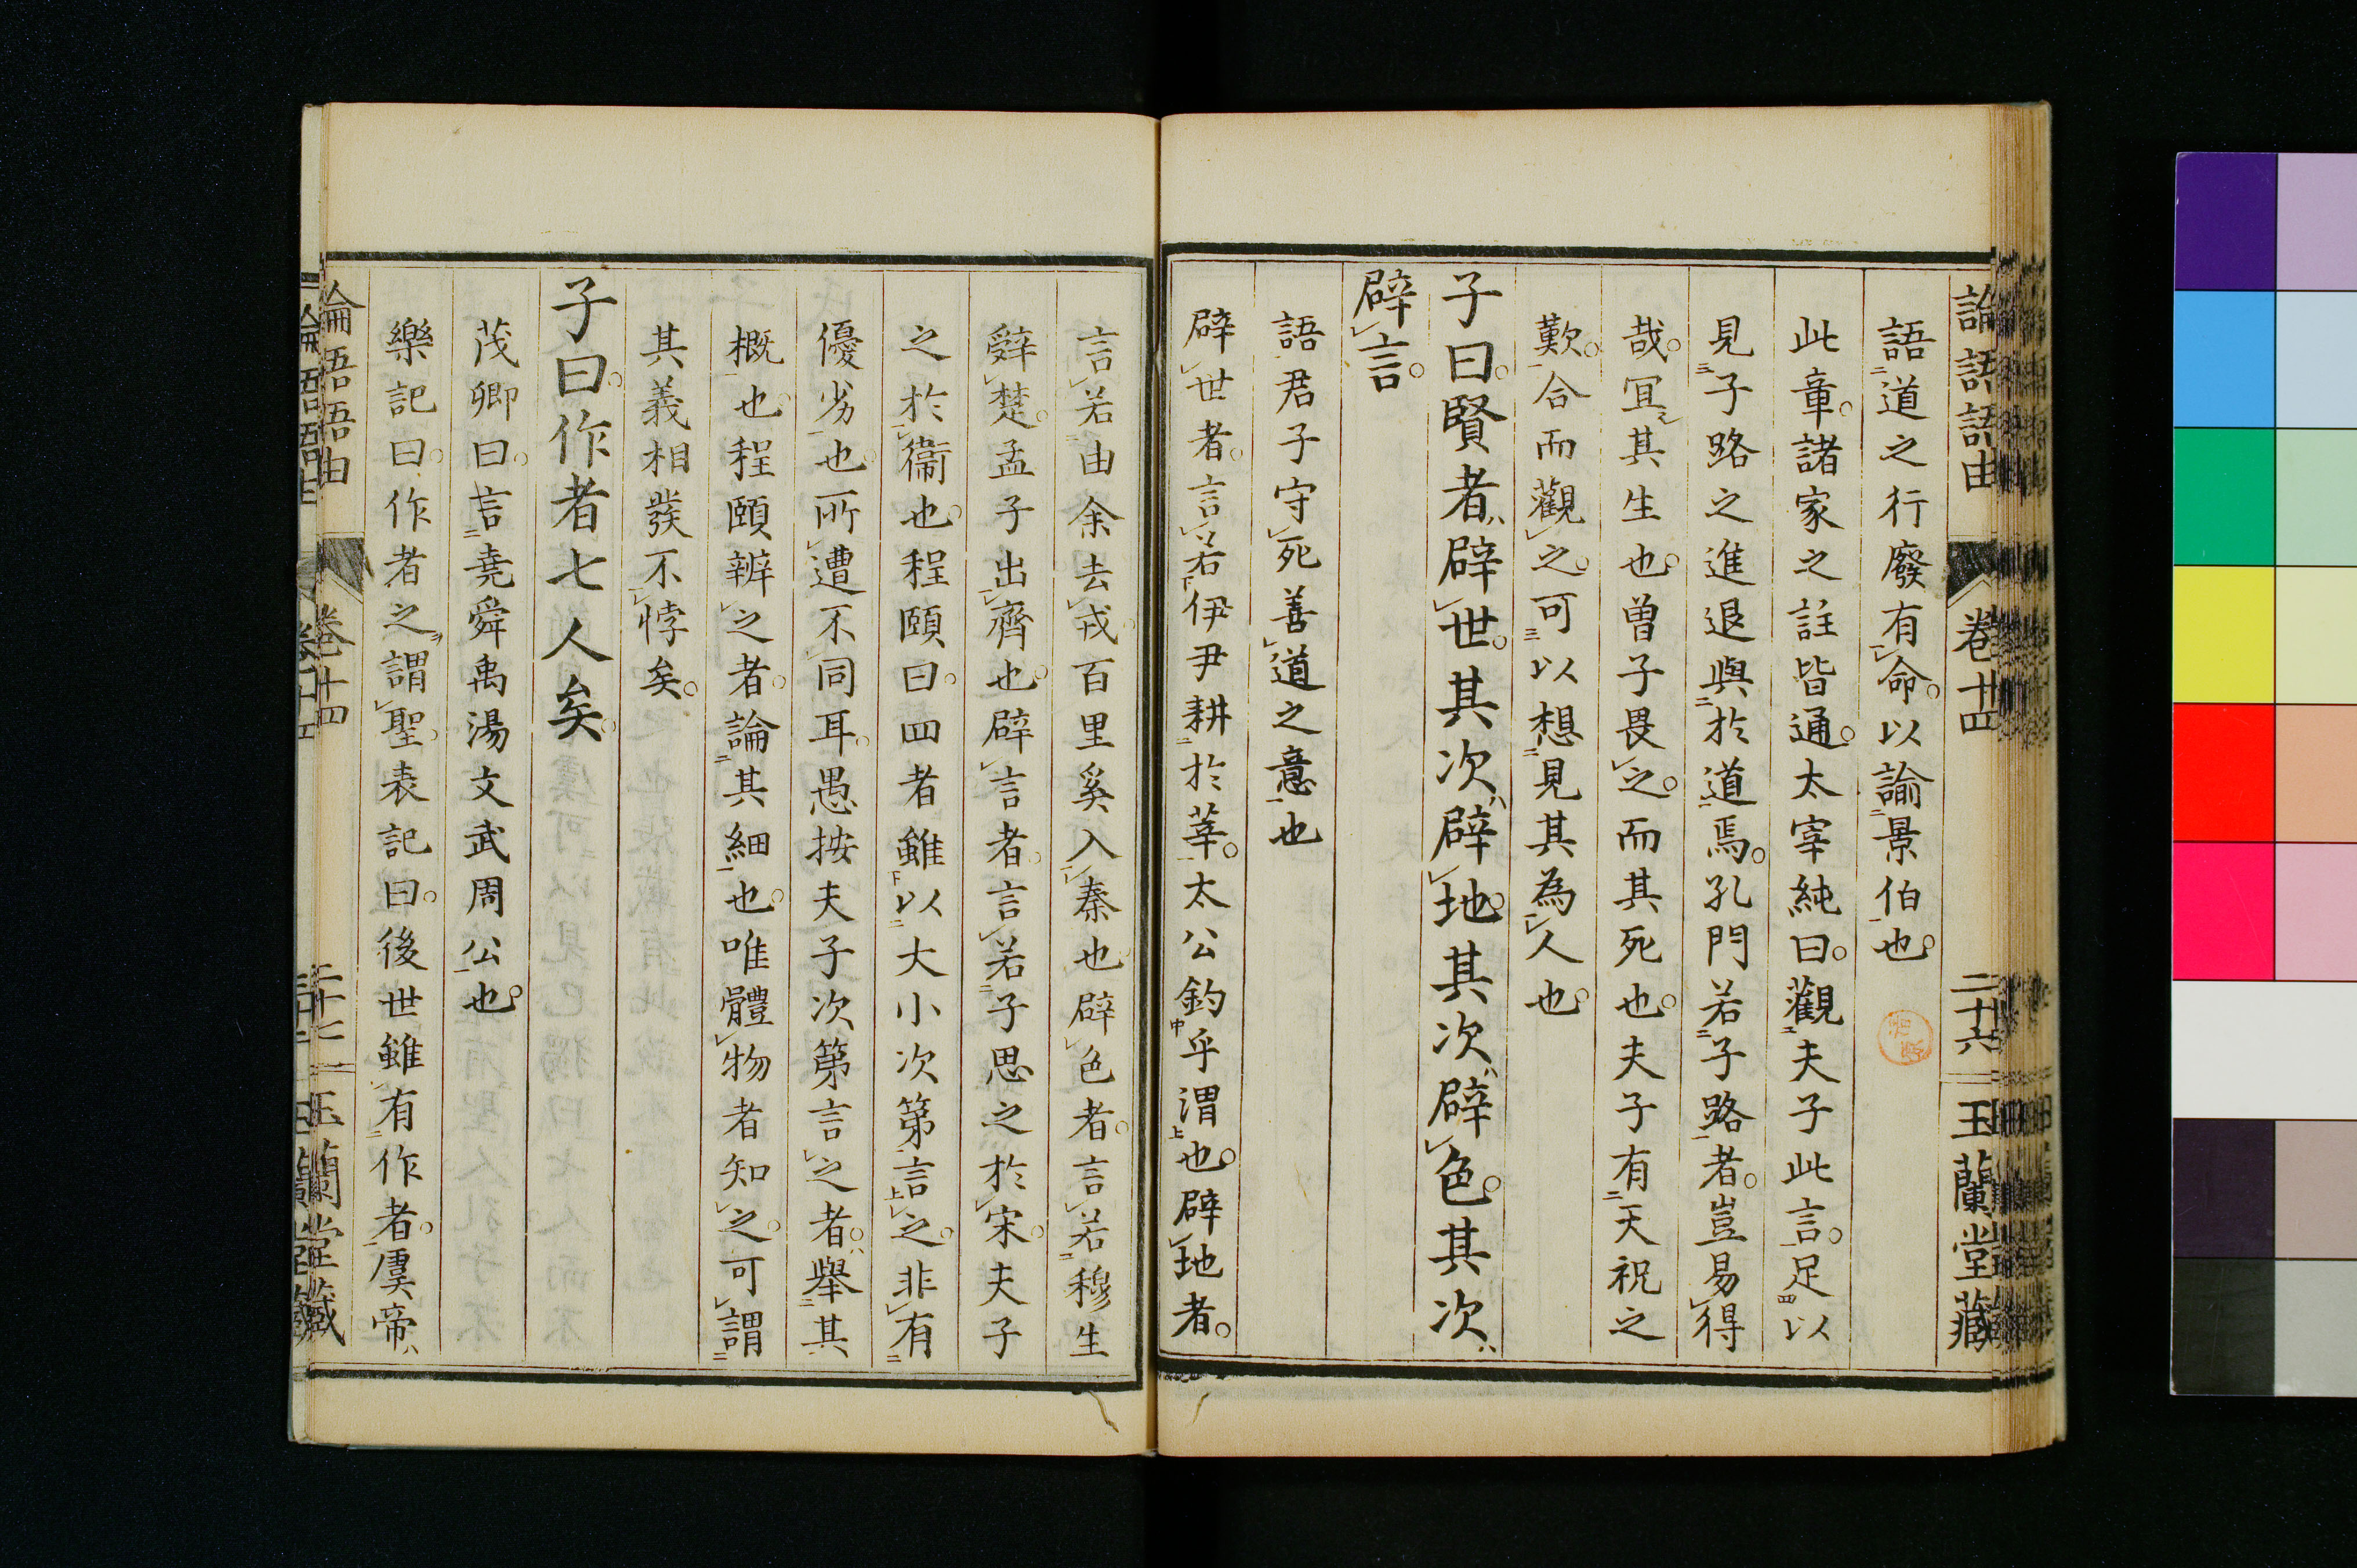 論語語由 卷十四 二十六 玉蘭堂藏
語道之行廢有命。以諭景伯也。
此章。諸家之註皆通。太宰純曰。觀夫子此言。足以
見子路之進退與於道焉。孔門若子路者。豈易得
哉。冝其生也。曽子畏之。而其死也。夫子有天祝之
歎。合而觀之。可以想見其為人也。
子曰。賢者辟世。其次辟地。其次辟色。其次
辟言。
語君子守死善道之意也
辟世者。言若伊尹耕於莘。太公釣乎渭也。辟地者。
言若由余去戎。百里奚入秦也。辟色者。言若穆生
辭楚。孟子出齊也。辟言者。言若子思之於宋。夫子
之於衞也。程頤曰。四者雖以大小次第言之。非有
優劣也。所遭不同耳。愚按夫子次第言之者。舉其
概也。程頤辨之者。論其細也。唯體物者知之。可謂
其義相發不悖矣。
子曰。作者七人矣。
茂卿曰。言堯舜禹湯文武周公也。
樂記曰。作者之謂聖。表記曰。後世雖有作者。虞帝
論語語由 卷十四 二十七 玉蘭堂藏